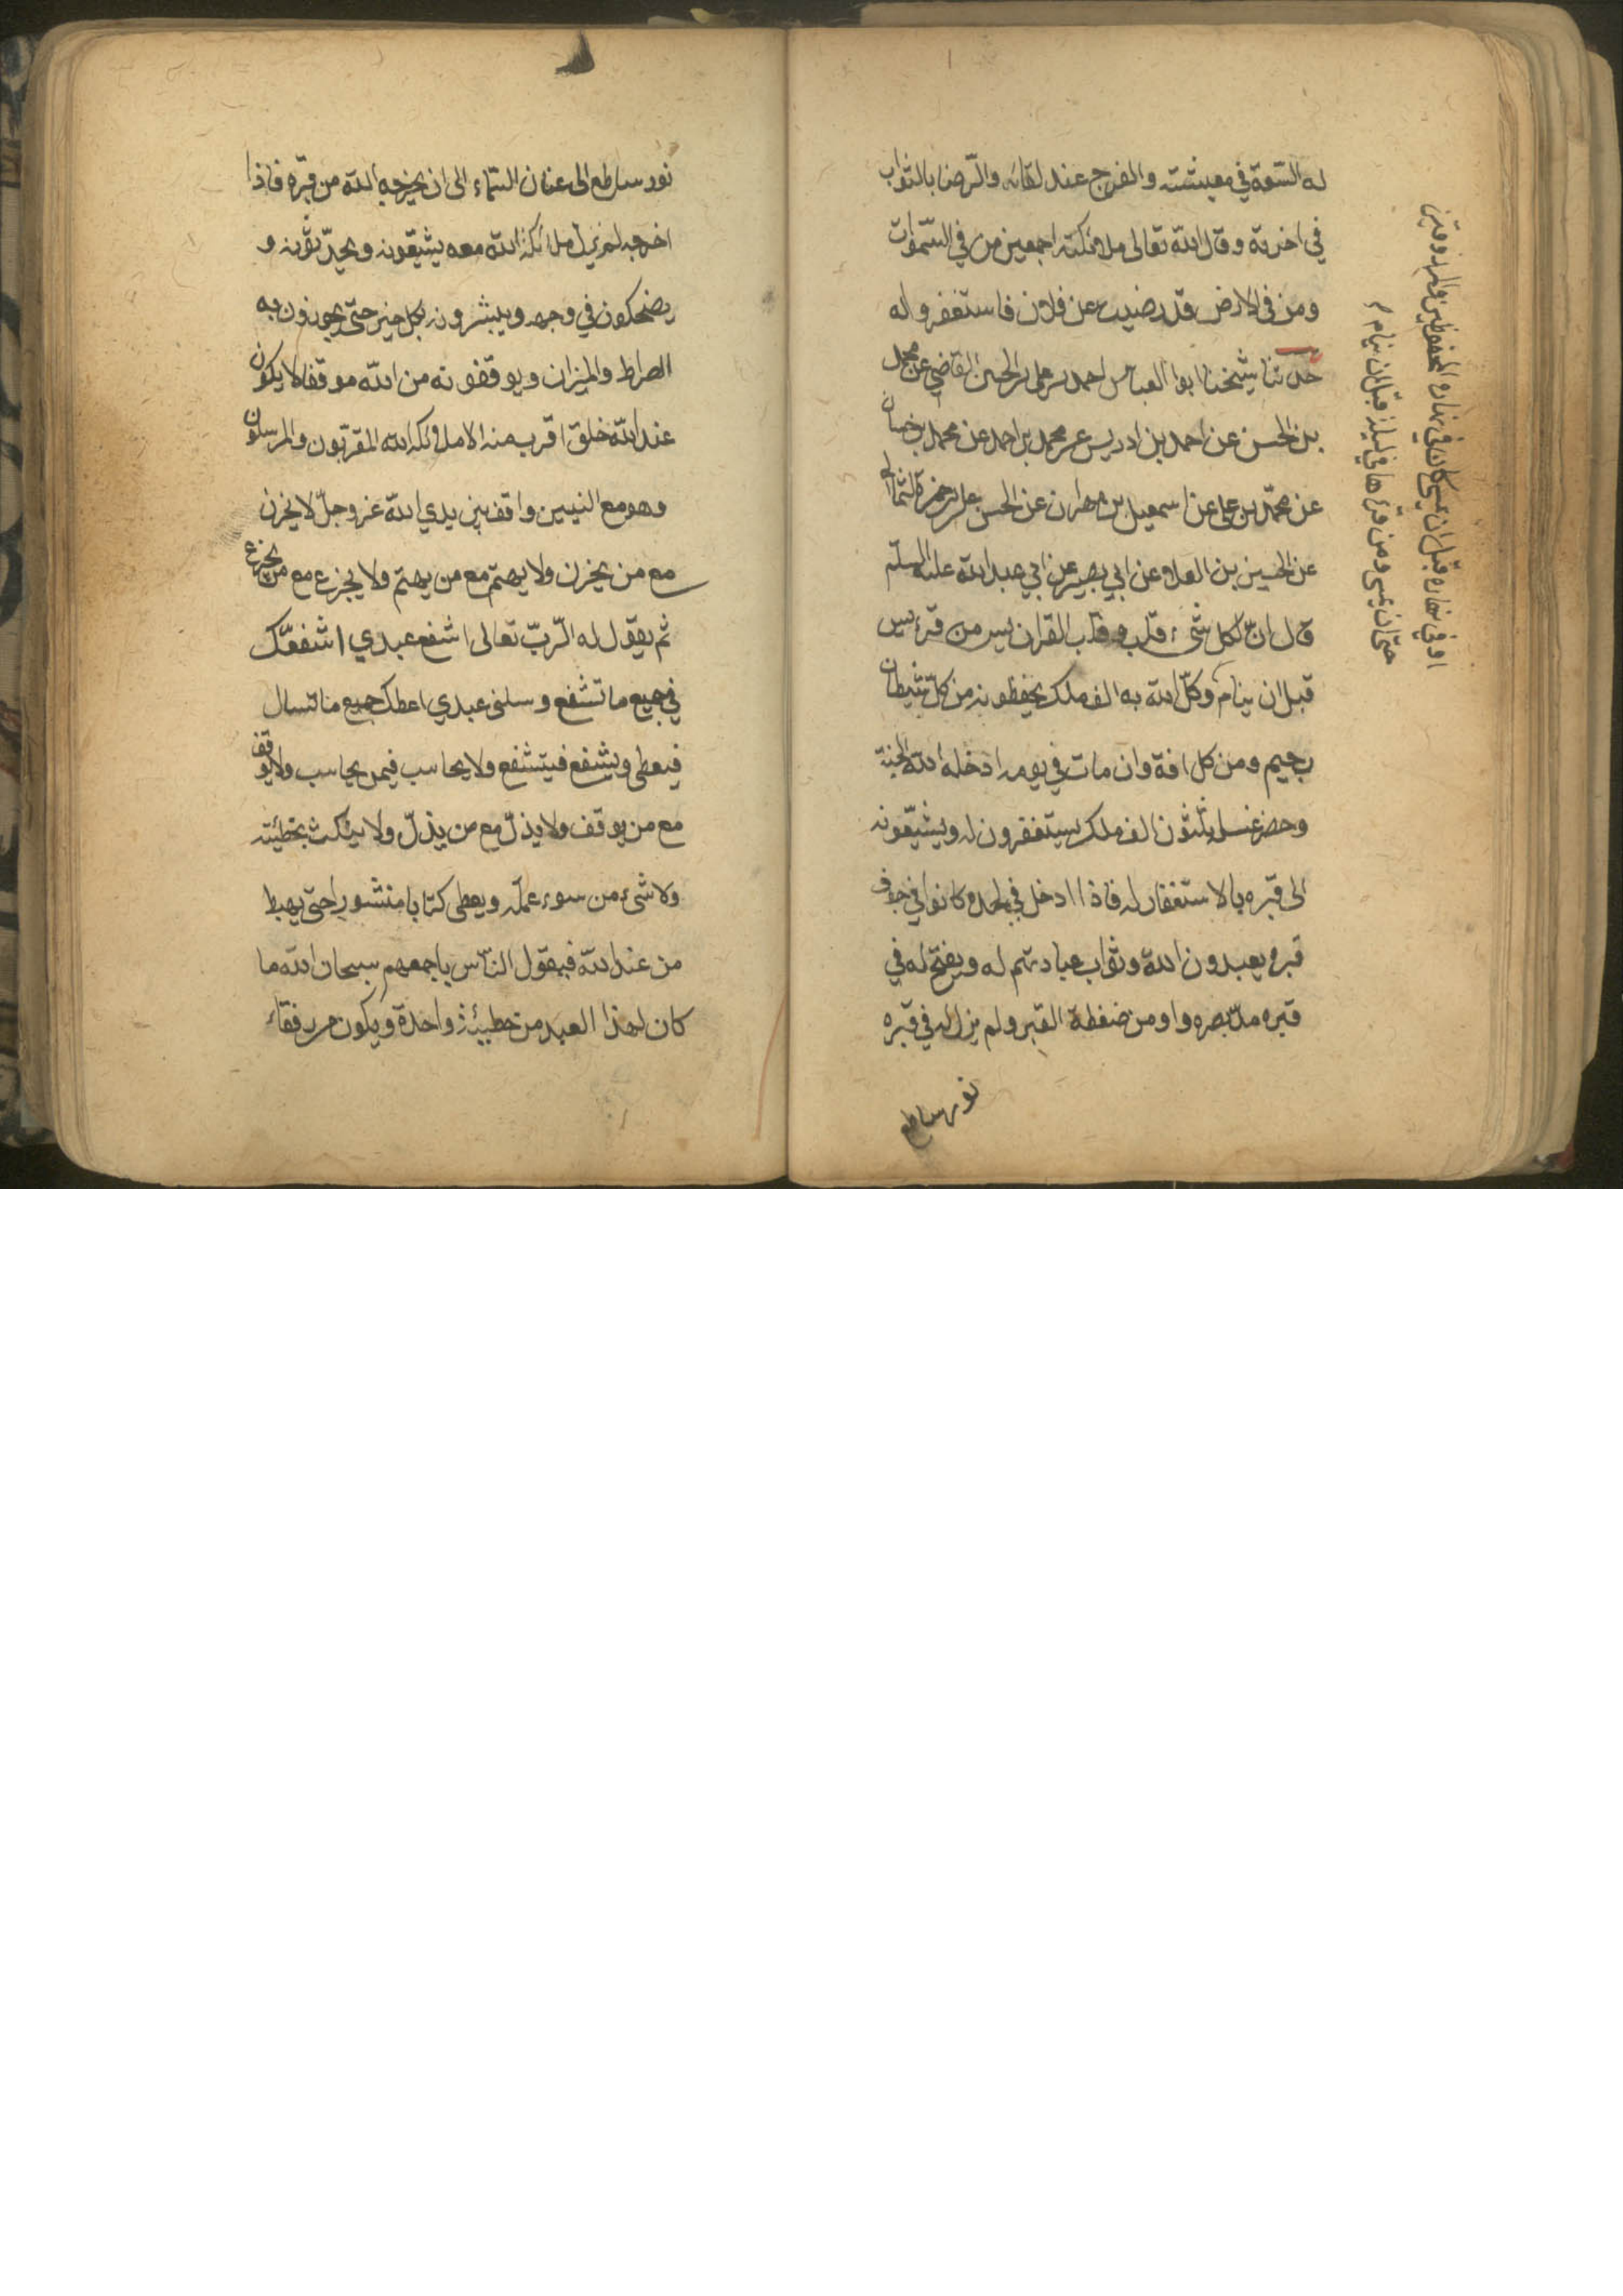 له السّعة في معيشته والفرج عند لقائه والرّضا بالثواب
في اخرته وقال الله تعالى ملائكته اجمعين من في السّموات
ومن في الارض قد رضيت عن فلان فاستغفروا له
حدثنا شيخنا ابوا العباس احمد بن علي بن الحسين القاضي عن محمد
بن الحسن عن احمد بن ادريس عن محمد بن احمد عن محمد بن حسان
عن محمّد بن علي عن اسمعيل بن مهران عن الحسن بن علي بن حمزة الثمالي
عن الحسين بن العلاء عن ابي بصير عن ابي عبد الله عليه السلم
قال انّ لكل شيء قلب وقلب القران يس من قرء يس
قبل ان ينام وكّل الله به الف ملك يحفظونه من كلّ شيطان
رجيم ومن كل افة وان مات في يومه ادخله الله الجنة
وحضر غسله ثلثون الف ملك يستغفرون له ويشيّعونه
الى قبره بالاستغفار له فاذا ادخل في لحده كانوا في جوف
قبره يعبدون الله وثواب عبادتهم له ويفتح له في
قبره مدّ بصره واومن ضغطة القبر ولم يزل له في قبره
نور ساطع
او في نهاره قبل ان يمسي كان في نهاره المحفوظين والمرزوقين
حتى ان يمسى ومن قرءها في ليلة قبل ان ينام
نور ساطع الى عنان السّماء الى ان يخرجه الله من قبره فاذا
اخرجه لم يزل ملائكة الله معه يشيّعونه ويحدّثونه و
يضحكون في وجهه ويبشرونه بكل خير حتى يجوزون به
الصراط والميزان ويوقفونه من الله موقفا لا يكون
عند الله خلق اقرب منه الا ملائكة الله المقرّبون والمرسلون
وهو مع النبيين واقف بين يدي الله عز وجلّ لا يحزن
مع من يحزن ولا يهتم مع من يهتم ولا يجزع مع من يجزع
ثم يقول له الرّبّ تعالى اشفع عبدي اشفعّك
في جميع ما تشفع وسلنى عبدي اعطك جميع ما تسال
فيعطى ويشفع فيتشفع ولا يحاسب فيمن يحاسب ولا يوقف
مع من يوقف ولا يذلّ مع من يذلّ ولا ينكث بخطيئته
ولا شىء من سوء عمله ويعطى كتابا منشورا حتى يهبط
من عند الله فيقول النّاس باجمعهم سبحان الله ما
كان لهذا العبد من خطيئة واحدة ويكون من رفقاء